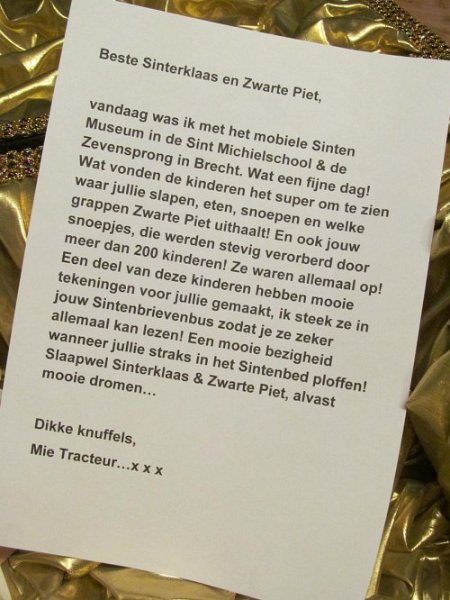 Beste Sinterklaas en Zwarte Piet,
vandaag was ik met het mobiele Sinten
Museum in de Sint Michielschool & de
Zevensprong in Brecht. Wat een fijne dag!
Wat vonden de kinderen het super om te zien
waar jullie slapen, eten, snoepen en welke
grappen Zwarte Piet uithaalt! En ook jouw
snoepjes, die werden stevig verorberd door
meer dan 200 kinderen! Ze waren allemaal op!
Een deel van deze kinderen hebben mooie
tekeningen voor jullie gemaakt, ik steek ze in
jouw Sintenbrievenbus zodat je ze zeker
allemaal kan lezen! Een mooie bezigheid
wanneer jullie straks in het Sintenbed ploffen!
Slaapwel Sinterklaas & Zwarte Piet, alvast
mooie dromen…
Dikke knuffels,
Mie Tracteur…x x x